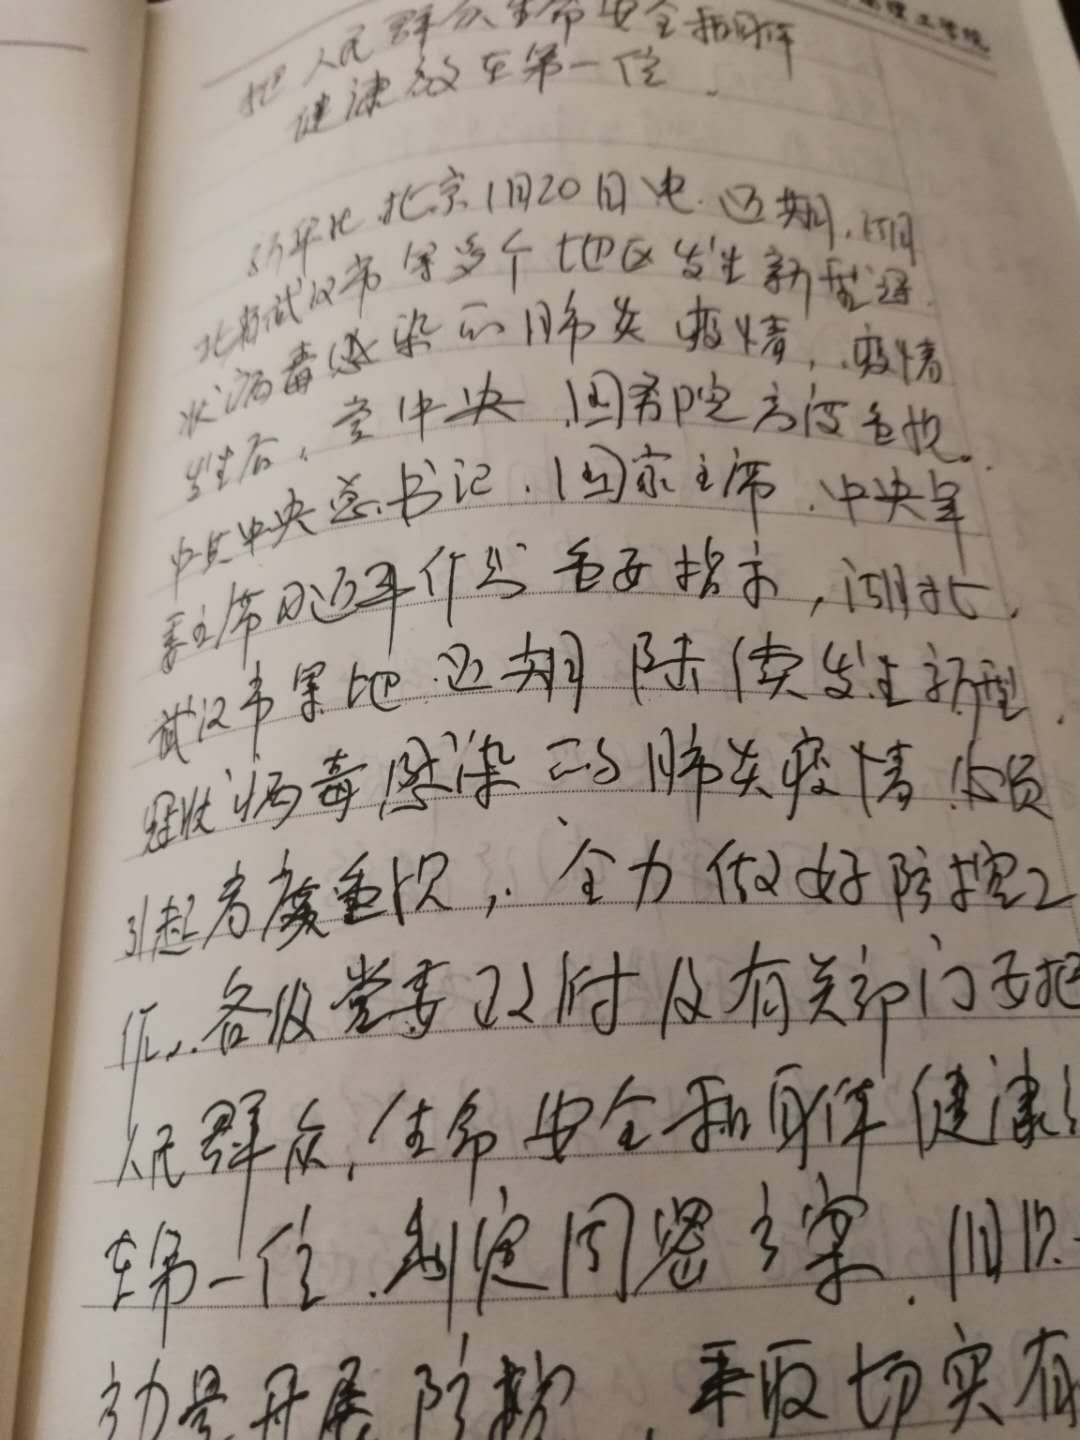 理工学院
把人民群众生命安全和身体
健康放在第一位.
新华社北京1月20日电.近期,湖
北省武汉市等多个地区发生新型冠
状病毒感染的肺炎疫情,疫情
发生后,党中央、国务院高度重视。
中共中央总书记、国家主席、中央军
委主席习近平作出重要指示,湖北,
武汉市等地近期陆续发生新型
冠状病毒感染的肺炎疫情必须
引起高度重视,全力做好防控工
作..各级党委政府及有关部门要把
人民群众,生命安全和身体健康
在第一位.制定周密方案.组织
力量开展防控,采取切实有